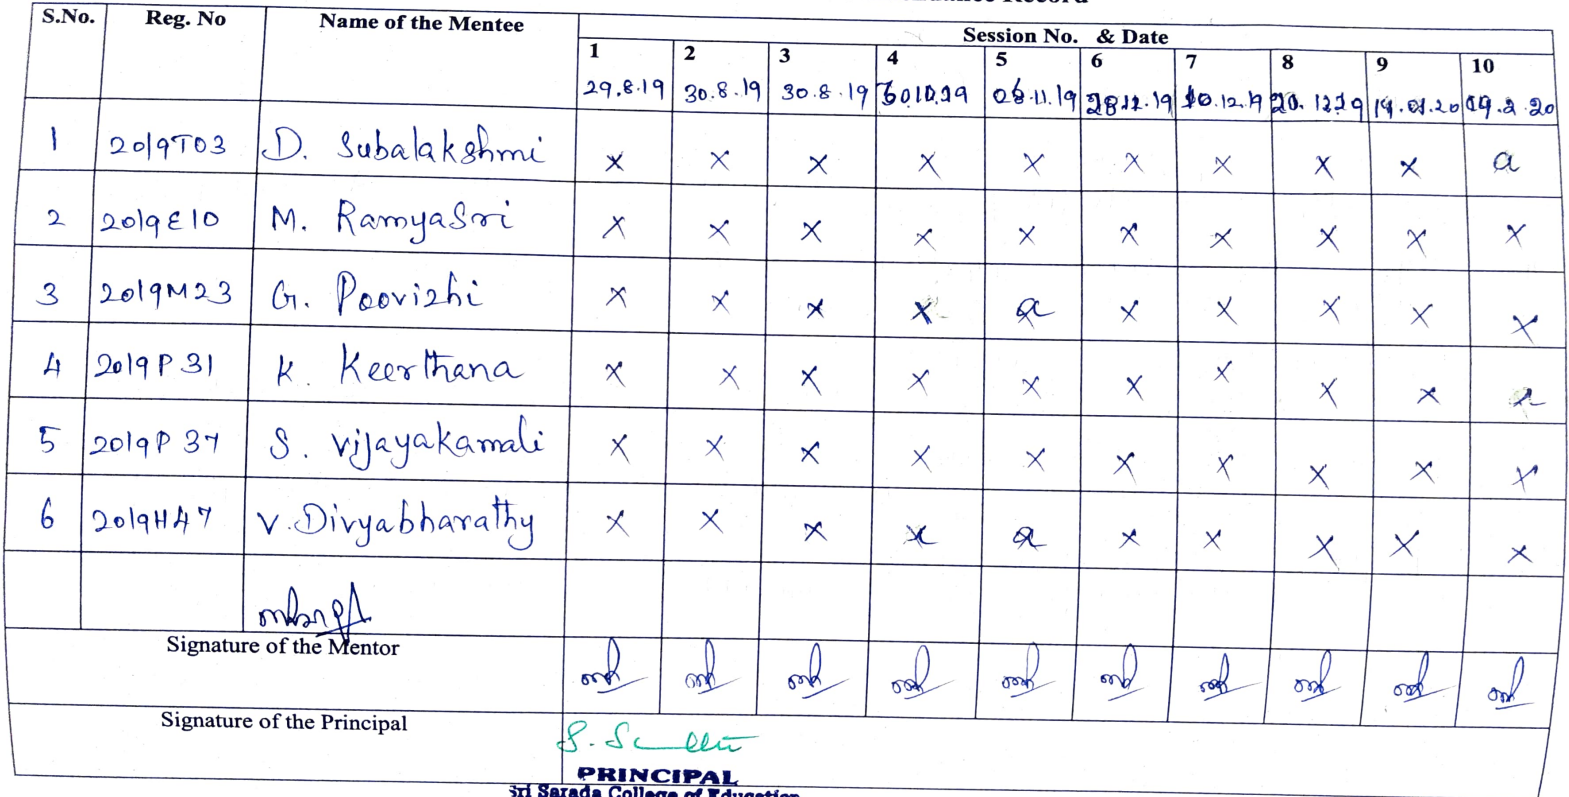 S.No. Reg. No Name of the Mentee Session No. & Date
1 2 3 4 5 6 7 8 9 10
29.8.19 30.8.19 30.8.19 .11.19 .12.19 20.12.19 .20 19.2.20
1 2019T03 D. Subalakshmi x x x x x x x x x a
2 2019E10 M. RamyaSri x x x x x x x x x x
3 2019M23 G. Poovizhi x x x x a x x x x x
4 2019P31 K. Keerthana x x x x x x x x x a
5 2019P37 S. Vijayakamali x x x x x x x x x x
6 2019H47 V. Divyabharathy x x x x a x x x x x
Signature of the Mentor
Signature of the Principal
PRINCIPAL
Sri Sarada College of Education